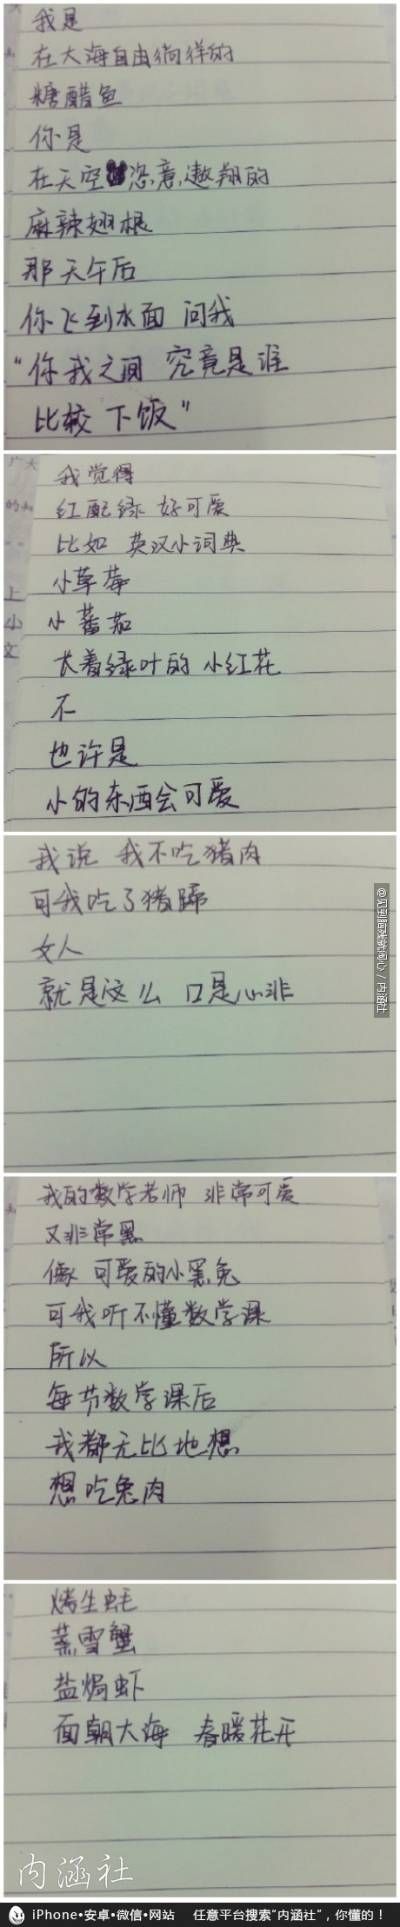 我是
在大海自由徜徉的
糖醋鱼
你是
在天空恣意遨翔的
麻辣翅根
那天午后
你飞到水面 问我
“你我之间 究竟是谁
比较 下饭”
我觉得
红配绿 好可爱
比如 英汉小词典
小草莓
小蕃茄
长着绿叶的 小红花
不
也许是
小的东西会可爱
我说 我不吃猪肉
可我吃了猪蹄
女人
就是这么 口是心非
我的数学老师 非常可爱
又非常黑
像 可爱的小黑兔
可我听不懂数学课
所以
每节数学课后
我都无比地想
想吃兔肉
烤生蚝
蒸雪蟹
盐焗虾
面朝大海 春暖花开
内涵社
iPhone·安卓·微信·网站 任意平台搜索“内涵社”，你懂的！